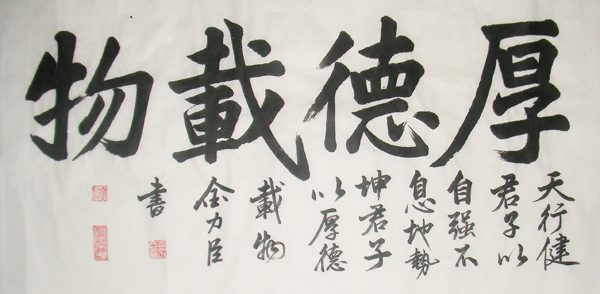 厚德載物
天行健
君子以
自强不
息地勢
坤君子
以厚德
載物
金力臣
書